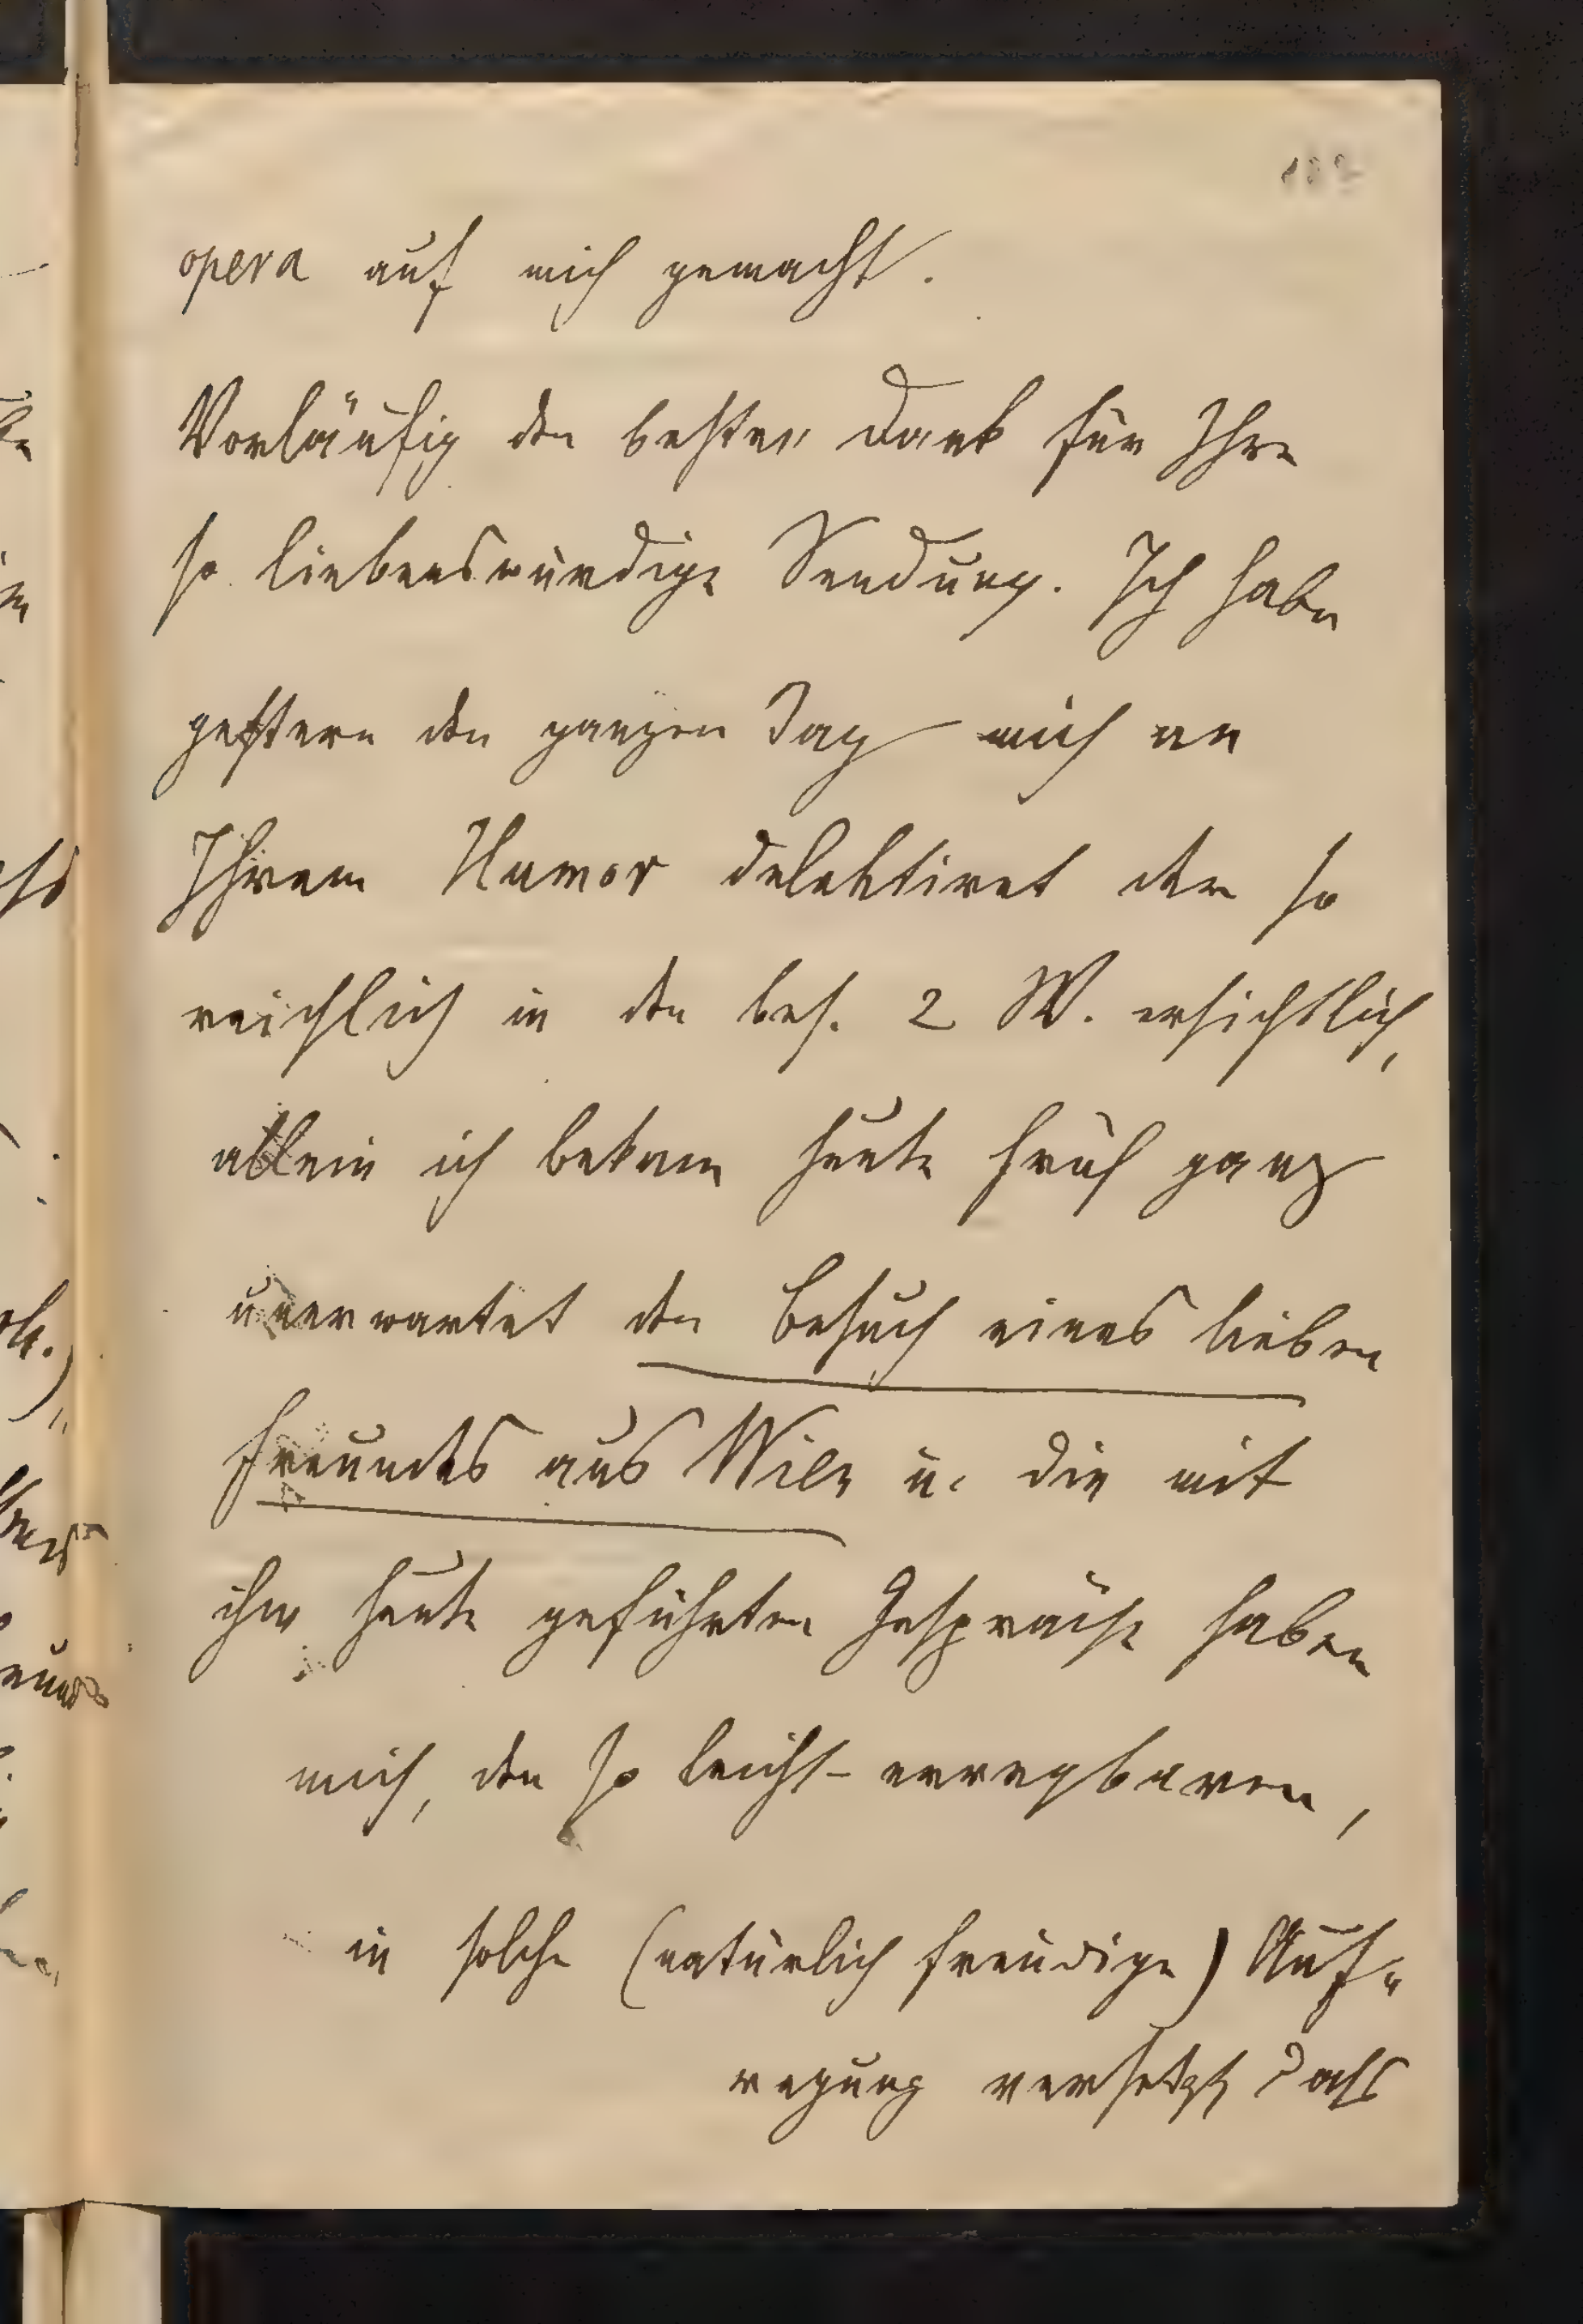 opera auf mich gemacht.
Vorläufig den besten Dank für Ihre
so liebenswürdige Sendung. Ich habe
gestern den ganzen Tag mich an
Ihrem Humor delektiret der so
reichlich in den bes. 2 W. ersichtlich,
allein ich bekam heute früh ganz
unerwartet den Besuch eines lieben
Freundes aus Wien u. die mit
ihm heute geführten Gespräche haben
mich, den so leicht-erregbaren,
in solche (natürlich freudige) Auf-
regung versetzt dass